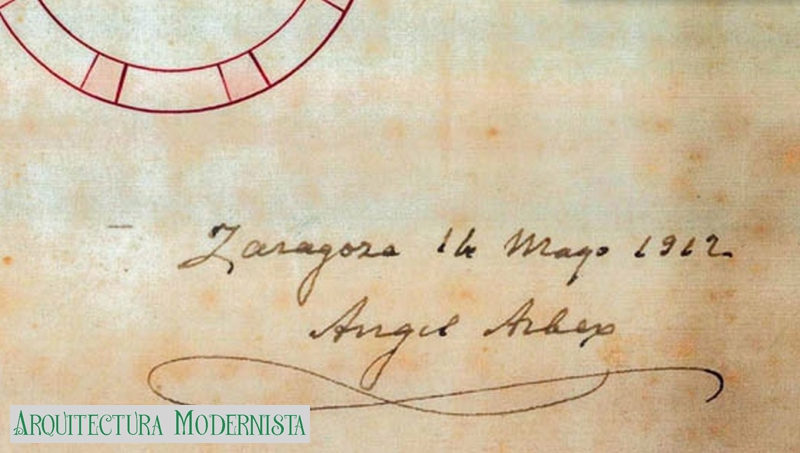 Zaragoza 14 Mayo 1912.
Angel Arbex
Arquitectura Modernista